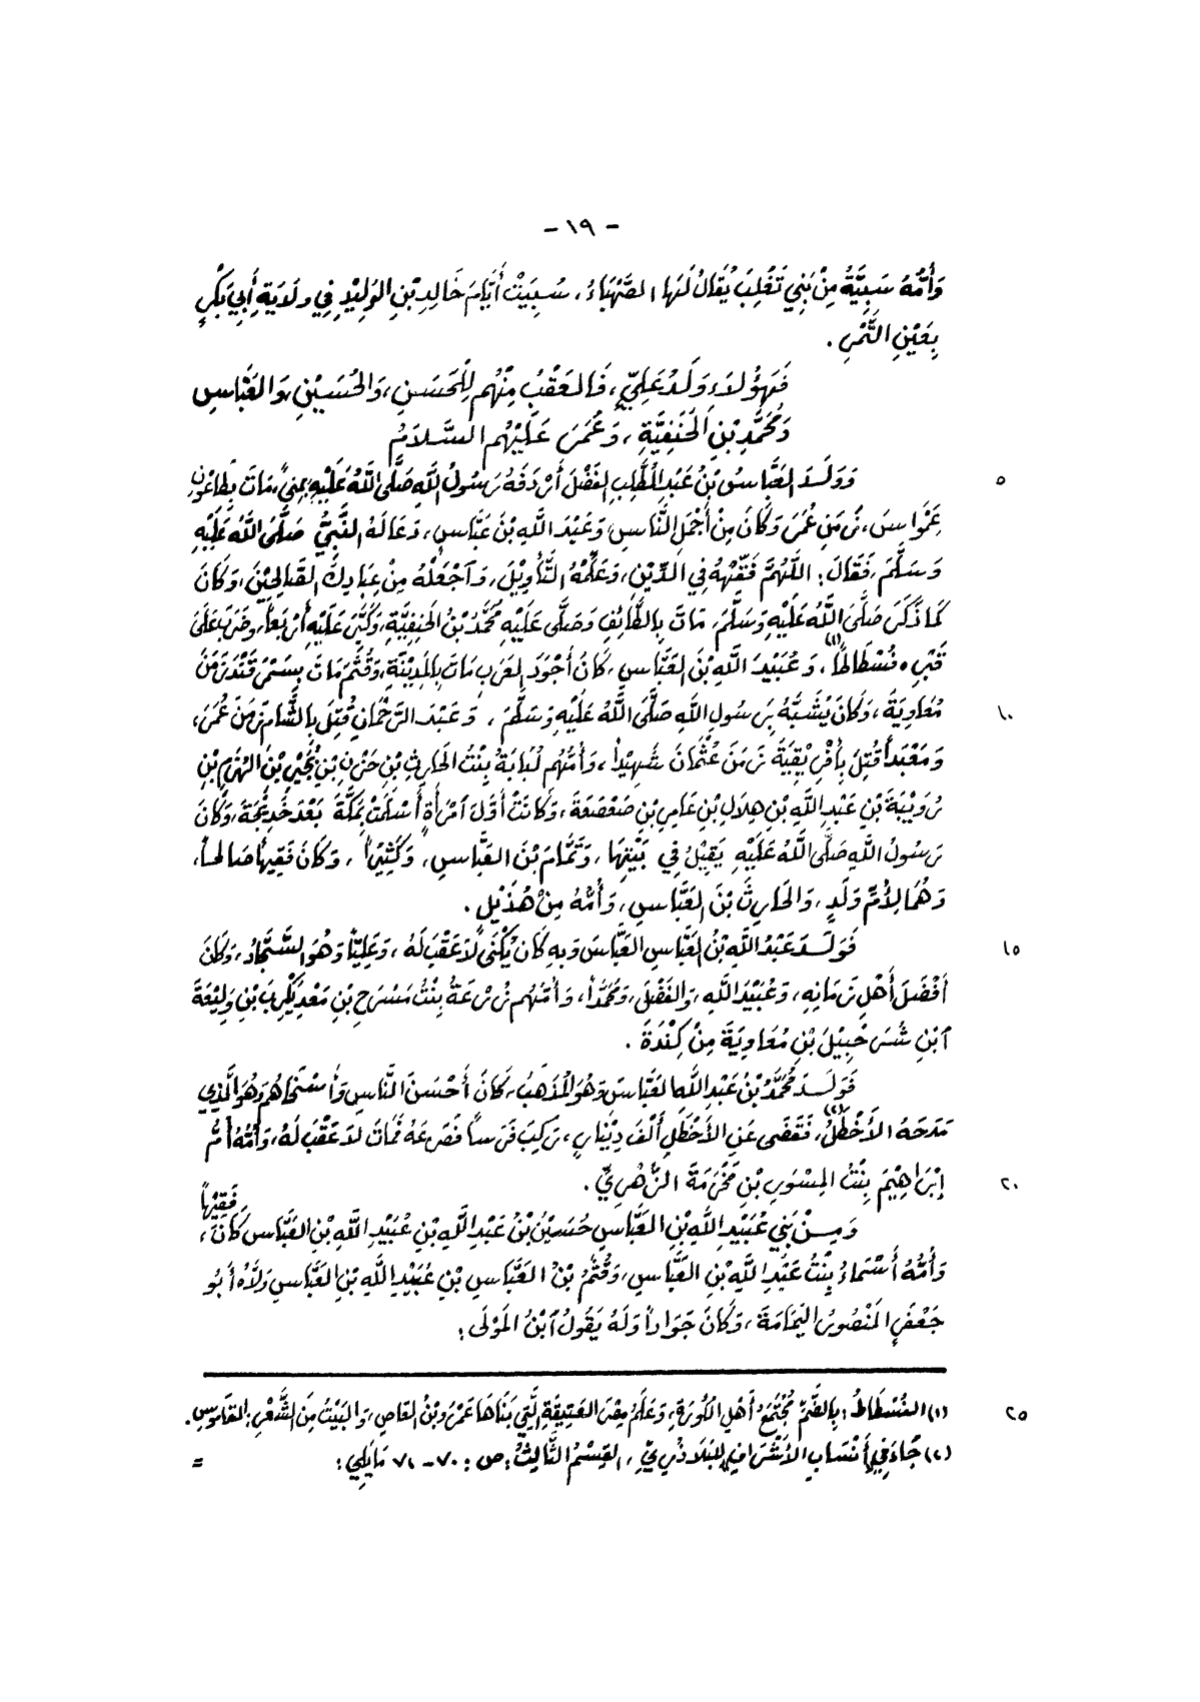 - ١٩ -
وَأُمُّهُ سَبِيَّةٌ مِنْ بَنِي تَغْلِبَ يُقَالُ لَهَا الصَّهْبَاءُ، سُبِيَتْ أَيَّامَ خَالِدِ بْنِ الوَلِيْدِ فِي وِلَايَةِ أَبِي بَكْرٍ
بِعَيْنِ التَّمْرِ .
فَهَؤُلَاءِ وَلَدُ عَلِيٍّ، فَالعَقْبُ مِنْهُم لِلْحَسَنِ، وَالحُسَيْنِ، وَالعَبَّاسِ
وَمُحَمَّدِ بْنِ الحَنَفِيَّةِ، وَعُمَرَ عَلَيْهُم السَّلَامُ
٥ وَوَلَدَ العَبَّاسُ بْنُ عَبْدِ المُطَّلِبِ الفَضْلَ أَرْدَفَهُ رَسُولُ اللَّهِ صَلَّى اللَّهُ عَلَيْهِ بِمِنىً، مَاتَ بِطَاعُونِ
عَمْوَاسَ، زَمَنَ عُمَرَ وَكَانَ مِنْ أَجْمَلِ النَّاسِ، وَعَبْدَ اللَّهِ بْنَ عَبَّاسٍ، دَعَا لَهُ النَّبِيُّ صَلَّى اللَّهُ عَلَيْهِ
وَسَلَّمَ، فَقَالَ: اللَّهُمَّ فَقِّهْهُ فِي الدِّيْنِ، وَعَلِّمْهُ التَّأْوِيْلَ، وَآجْعَلْهُ مِنْ عِبَادِكَ الصَّالِحِيْنَ، وَكَانَ
كَمَا ذَكَرَ صَلَّى اللَّهُ عَلَيْهِ وَسَلَّمَ، مَاتَ بِالطَّائِفِ وَصَلَّى عَلَيْهِ مُحَمَّدُ بْنُ الحَنَفِيَّةِ، وَكَبَّرَ عَلَيْهِ أَرْبَعاً، وَضَرَبَ عَلَى
قَبْرِهِ فُسْطَاطاً(١)، وَعُبَيْدَ اللَّهِ بْنَ العَبَّاسِ، كَانَ أَجْوَدَ العَرَبِ مَاتَ بِالمَدِيْنَةِ، وَقُثَمَ مَاتَ بِسَمَرْقَنْدَ زَمَنَ
١٠ مُعَاوِيَةَ، وَكَانَ يُشَبَّهُ بِرَسُولِ اللَّهِ صَلَّى اللَّهُ عَلَيْهِ وَسَلَّمَ، وَعَبْدَ الرَّحْمَانِ قُتِلَ بِالشَّامِ زَمَنَ عُمَرَ،
وَمَعْبَداً قُتِلَ بِأَفْرِيْقِيَّةَ زَمَنَ عُثْمَانَ شَهِيْداً، وَأُمُّهُم لُبَابَةُ بِنْتُ الحَارِثِ بْنِ حَزْنِ بْنِ بُجَيْرِ بْنِ الهُزَمِ بْنِ
رُوَيْبَةَ بْنِ عَبْدِ اللَّهِ بْنِ هِلَالِ بْنِ عَامِرِ بْنِ صَعْصَعَةَ، وَكَانَتْ أَوَّلَ آمْرَأَةٍ أَسْلَمَتْ بِمَكَّةَ بَعْدَ خَدِيْجَةَ، وَكَانَ
رَسُولُ اللَّهِ صَلَّى اللَّهُ عَلَيْهِ يَقِيْلُ فِي بَيْتِهَا، وَتَمَّامَ بْنَ العَبَّاسِ، وَكَثِيْراً، وَكَانَ فَقِيهاً صَالِحاً،
وَهُمَا لِأُمِّ وَلَدٍ، وَالحَارِثَ بْنَ العَبَّاسِ، وَأُمُّهُ مِنْ هُذَيْلٍ .
١٥ فَوَلَدَ عَبْدُ اللَّهِ بْنُ العَبَّاسِ العَبَّاسَ وَبِهِ كَانَ يُكْنَى لَا عَقْبَ لَهُ، وَعَلِيّاً وَهُوَ السَّجَّادُ، وَكَانَ
أَفْضَلَ أَهْلِ زَمَانِهِ، وَعُبَيْدَ اللَّهِ، وَالفَضْلَ، وَمُحَمَّداً، وَأُمُّهُم زُرْعَةُ بِنْتُ مَسْرَحِ بْنِ مَعْدِيْكَرِبَ بْنِ وَلِيْعَةَ
آبْنِ شُرَحْبِيْلَ بْنِ مُعَاوِيَةَ مِنْ كِنْدَةَ .
فَوَلَدَ مُحَمَّدُ بْنُ عَبْدِ اللَّهِ العَبَّاسَ وَهُوَ المُذْهَبُ، كَانَ أَحْسَنَ النَّاسِ وَأَسْخَاهُم وَهُوَ الَّذِي
مَدَحَهُ الأَخْطَلُ(٢)، فَقَضَى عَنِ الأَخْطَلِ أَلْفَ دِيْنَارٍ، رَكِبَ فَرَساً فَصَرَعَهُ فَمَاتَ لَا عَقْبَ لَهُ، وَأُمُّهُ أُمُّ
٢٠ إِبْرَاهِيْمَ بِنْتُ المِسْوَرِ بْنِ مَخْرَمَةَ الزُّهْرِيِّ .
وَمِنْ بَنِي عُبَيْدِ اللَّهِ بْنِ العَبَّاسِ حُسَيْنُ بْنُ عَبْدِ اللَّهِ بْنِ عُبَيْدِ اللَّهِ بْنِ العَبَّاسِ كَانَ فَقِيْهاً،
وَأُمُّهُ أَسْمَاءُ بِنْتُ عَبْدِ اللَّهِ بْنِ العَبَّاسِ، وَقُثَمُ بْنُ العَبَّاسِ بْنِ عُبَيْدِ اللَّهِ بْنِ العَبَّاسِ وَلَّاهُ أَبُو
جَعْفَرٍ المَنْصُورُ اليَمَامَةَ، وَكَانَ جَوَاداً وَلَهُ يَقُولُ آبْنُ المَوْلَى :
٢٥ (١) الفُسْطَاطُ : بِالضَّمِّ مُجْتَمَعُ أَهْلِ الكُورَةِ، وَعَلَمُ مِصْرَ العَتِيقَةِ الَّتِي بَنَاهَا عَمْرُو بْنُ العَاصِ، وَالبَيْتُ مِنَ الشَّعْرِ : القَامُوسِ.
(٢) جَاءَ فِي «أَنْسَابِ الأَشْرَافِ» لِلْبَلَاذُرِيِّ، القِسْمُ الثَّالِثُ : ص : ٧٠-٧١ مَايَلِي : =